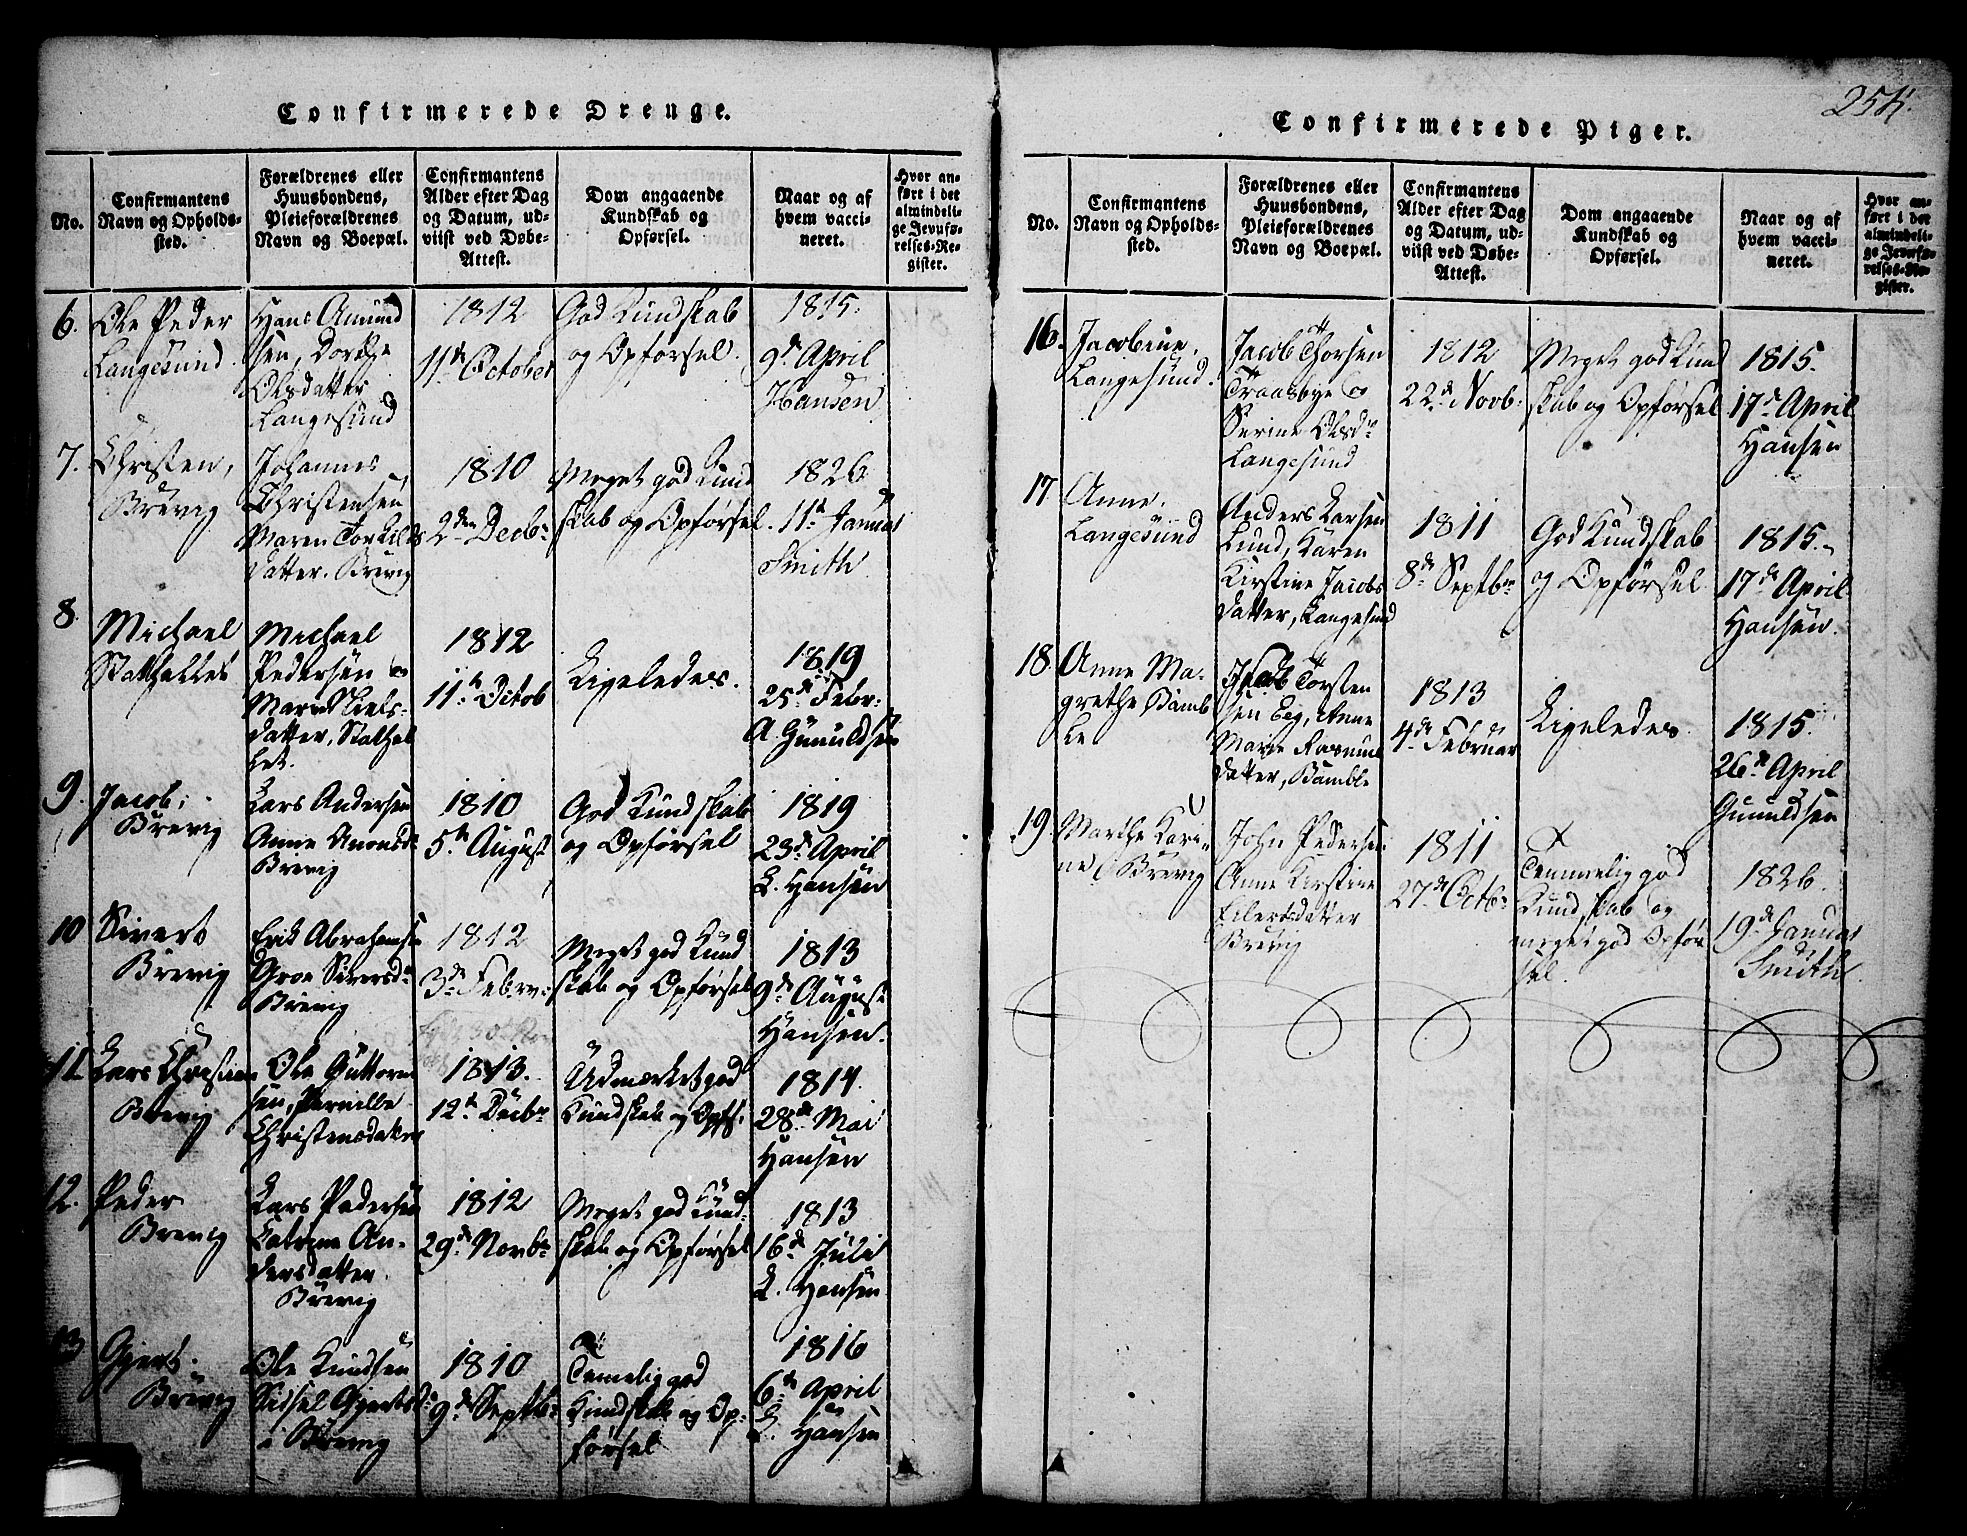 Confirmerede Drenge.
No.
Confirmantens
Navn og Opholds-
sted.
Forældrenes eller
Huusbondens,
Pleieforældrenes
Navn og Boepæl.
Confirmantens
Alder efter Dag
og Datum, ud-
viist ved Døbe-
Attest.
Dom angaaende
Kundskab og
Opførsel.
Naar og af
hvem vacci-
neret.
Hvor an-
ført i det
almindeli-
ge Jevnfø-
relses-Re-
gister.
6.
Ole Peder
Langesund.
Hans Amund
sen, Dorthe
Olsdatter
Langesund
1812
11te October
God Kundskab
og Opførsel.
1815.
9de April
Hansen
7.
Christen,
Brevig
Johannes
Christensen
Maren Torkilds
datter. Brevig
1810
2den Decbr
Meget god Kund
skab og Opførsel.
1826
11te Januar
Smith
8.
Michael
Stathellet
Michael
Pedersen og
Maren Niels-
datter, Stathel
let.
1812
11te Octob
Ligeledes.
1819
25de Febr.
A. Gunuldsen
9.
Jacob,
Brevig
Lars Andersen
Anne Anonsd
Brevig
1810
5te August
God Kundskab
og Opførsel
1819
23de April
L. Hansen
10
Sivert
Brevig
Erik Abrahamsen
Groe Siversdr
Brevig
1812
3de Febrv.
Meget god Kund
skab og Opførsel
1813
9de August
Hansen.
11.
Lars Christian
Brevig
Ole Guttorm
sen, Pernille
Christensdatter
1813.
12te Decbr
Udmærket god
Kundskab og Opfs.
1814
28de Mai
Hansen
12.
Peder
Brevig
Lars Pedersen
Catrine An-
dersdatter
Brevig
1812
29de Novbr
Meget god Kund-
skab og Opførsel
1813
16de Juli
L. Hansen
13
Gjert.
Brevig
Ole Knudsen
Sidsel Gjertsdr
i Brevig
1810
9de Septbr
Temelig god
Kundskab og Op-
førsel
1816
6te April
L. Hansen
254.
Confirmerede Piger.
No.
Confirmantens
Navn og Opholds-
sted.
Forældrenes eller
Huusbondens,
Pleieforældrenes
Navn og Boepæl.
Confirmantens
Alder efter Dag
og Datum, ud-
viist ved Døbe-
Attest.
Dom angaaende
Kundskab og
Opførsel.
Naar og af
hvem vacci-
neret.
Hvor an-
ført i det
almindeli-
ge Jevnfø-
relses-Re-
gister.
16.
Jacobine,
Langesund.
Jacob Thorsen
Traasbye og
Serine Olsdr
Langesund
1812
22de Novb.
Meget god Kund
skab og Opførsel
1815.
17de April
Hansen
17
Anne,
Langesund
Anders Larsen
Lund, Karen
Kirstine Jacobs
datter, Langesund
1811
8de Septbr
God Kundskab
og Opførsel.
1815.
17de April
Hansen.
18.
Anne Ma-
grethe Bamb
le
Torsten
sen Eeg, Anne
Marie Rasmus
datter, Bamble
1813
4de Februar
Ligeledes.
1815.
26de April
Gunuldsen
19.
Marthe Kari-
ne Brevig
John Pedersen
Anne Kirstine
Eilertsdatter
Brevig
1811
27de Octbr
Temmelig god
Kundskab og
meget god Opfør
sel.
1826.
19de Januar
Smith